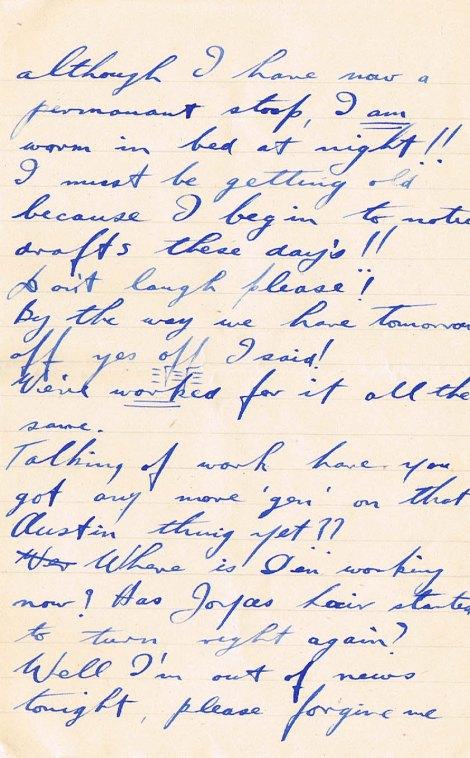 although I have now a
permanant stoop, I am
worm in bed at night!!
I must be getting old
because I begin to notice
drafts these day's!!
Don't laugh please!!
By the way we have tomorrow
off yes off I said!
We've worked for it all the
same.
Talking of work have you
got any more 'gen' on that
Austin thing yet??
Where is working
now? Has hair started
to turn right again?
Well I'm out of news
tonight, please forgive me